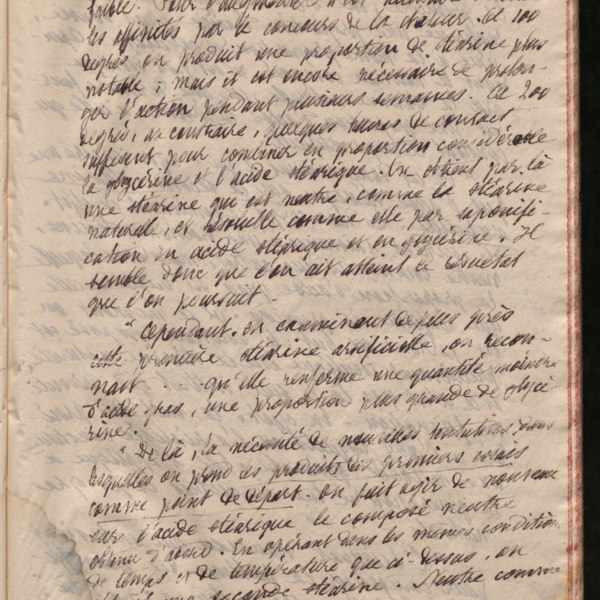 faible. Pour l'augmenter il est nécessaire
les affinités par le concours de la chaleur. A 100
degrés on produit une proportion de stéarine plus
notable ; mais il est encore nécessaire de prolon-
ger l'action pendant plusieurs semaines. A 200
degrés, au contraire, quelques heures de contact
suffisent pour combiner en proportion considérable
la glycérine et l'acide stéarique. On obtient par là
une stéarine qui est neutre, comme la stéarine
naturelle, et résoluble comme elle par saponifi-
cation en acide stéarique et en glycérine. Il
semble donc que l'on ait atteint le résultat
que l'on poursuit.
" Cependant en examinant de plus près
cette première stéarine artificielle, on recon-
naît ... qu'elle renferme une quantité moindre
d'acide gras, une proportion plus grande de glycé
rine.
" De là, la nécessité de nouvelles tentatives dans
lesquelles on prend les produits des premiers essais
comme point de départ. On fait agir de nouveau
sur l'acide stéarique le composé neutre
obtenu d'abord. En opérant dans les mêmes conditions
de temps et de température que ci-dessus, on
une seconde stéarine. Neutre comme